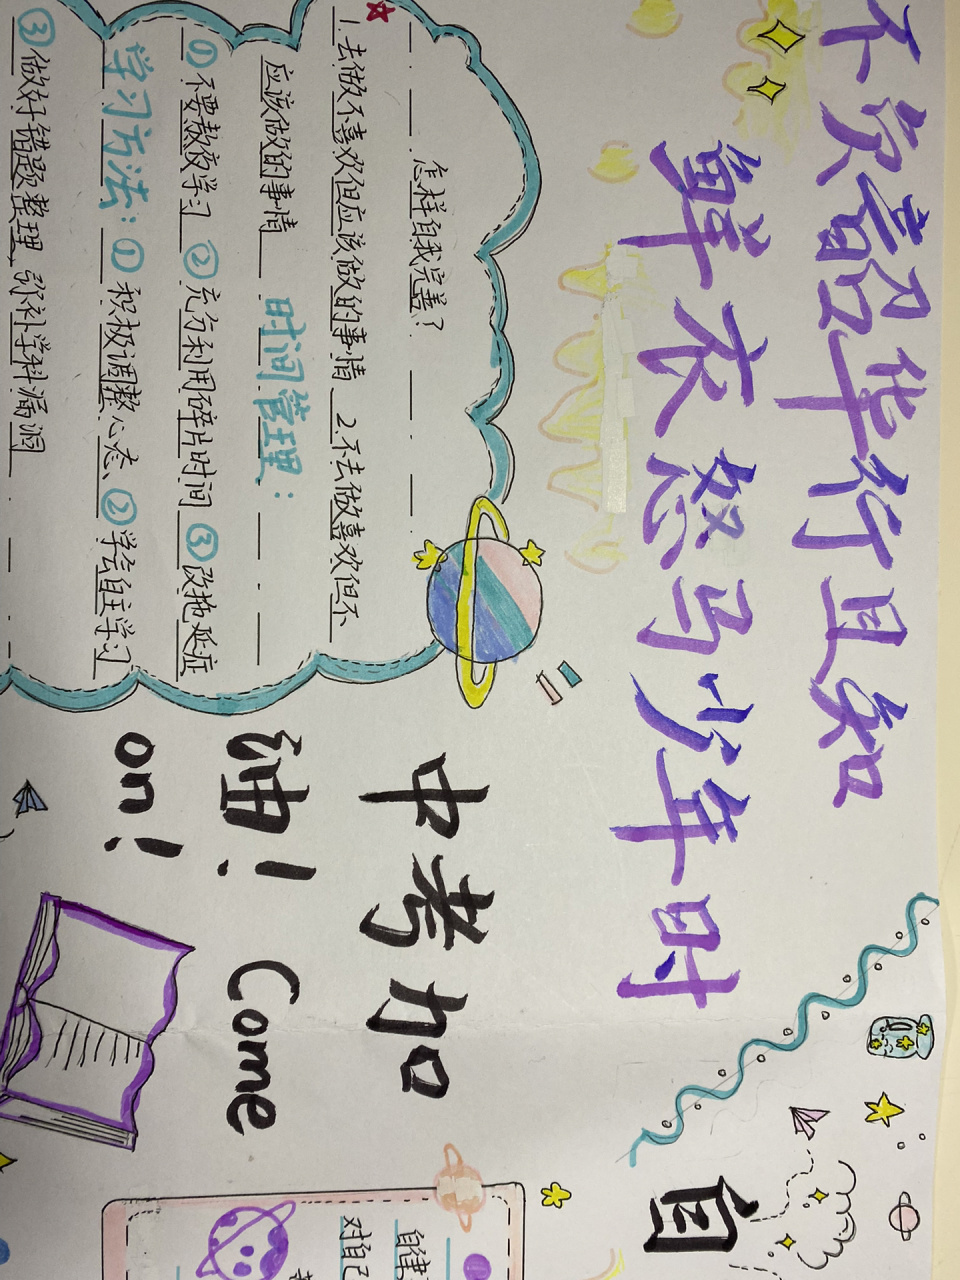 不负韶华行且知
鲜衣怒马少年时
怎样自我完善？
1.去做不喜欢但应该做的事情 2.不去做喜欢但不
应该做的事情 时间管理：
①不要熬夜学习 ②充分利用碎片时间 ③改拖延症
学习方法：①积极调整心态、②学会自主学习
③做好错题整理，弥补学科漏洞
中考加
油！Come
on！
自
自律
对自己